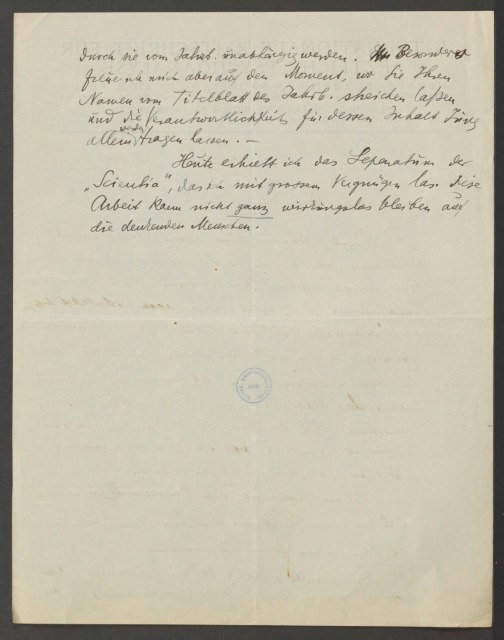 durch sie vom Jahrb. unabhängig werden. Besonders
freue ich mich aber auf den Moment, wo Sie Ihren
Namen vom Titelblatt des Jahrb. streichen laßen
und die Verantwortlichkeit für dessen Inhalt Jung
allein werden tragen lassen. —
Heute erhielt ich das Separatum der
„Scientia", das ich mit grossem Vergnügen las. Diese
Arbeit kann nicht ganz wirkungslos bleiben auf
die denkenden Menschen.